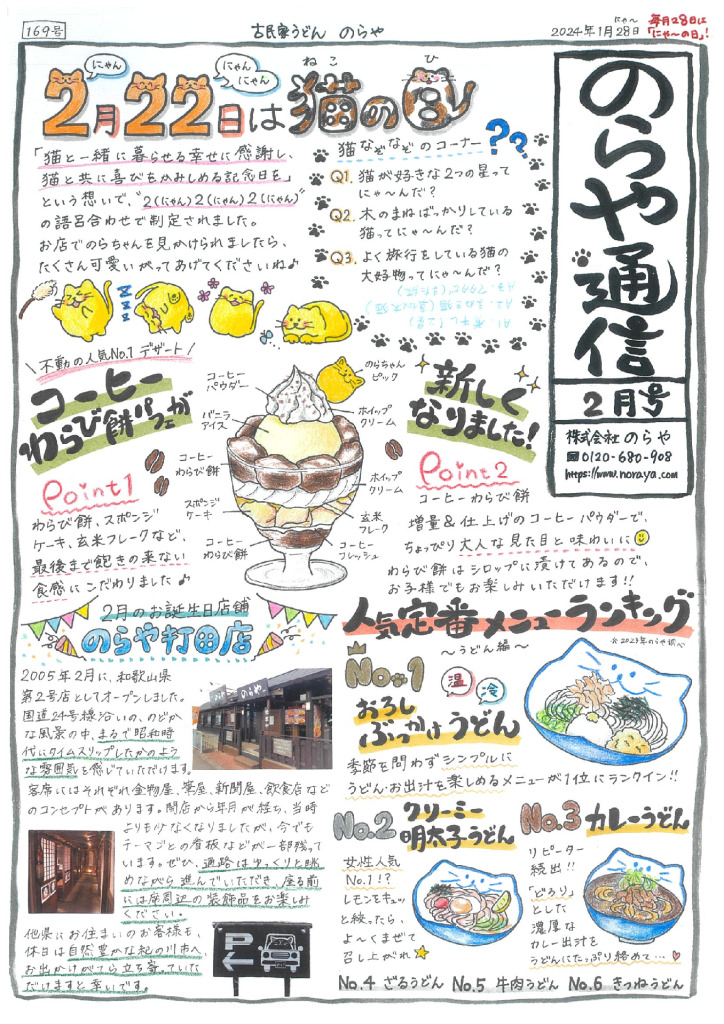 169号
古民家うどん のらや
2024年1月28日
にゃ〜
毎月28日は
「にゃ〜の日」!
のらや通信
2月号
株式会社 のらや
☎0120-680-908
https://www.noraya.com
にゃん
にゃん
にゃん
ねこ ひ
2月22日は猫の日
「猫と一緒に暮らせる幸せに感謝し、
猫と共に喜びをかみしめる記念日を」
という想いで、"2(にゃん)2(にゃん)2(にゃん)"
の語呂合わせで制定されました。
お店でのらちゃんを見かけられましたら、
たくさん可愛いがってあげてくださいね♪
猫なぞなぞのコーナー??
Q1. 猫が好きな2つの星って
にゃ〜んだ?
Q2. 木のまねばっかりしている
猫ってにゃ〜んだ?
Q3. よく旅行をしている猫の
大好物ってにゃ〜んだ?
zzz
\不動の人気No.1 デザート/
コーヒー
わらび餅パフェが
新しく
なりました!
コーヒー
パウダー
のらちゃん
ピック
バニラ
アイス
ホイップ
クリーム
コーヒー
わらび餅
ホイップ
クリーム
スポンジ
ケーキ
玄米
フレーク
コーヒー
わらび餅
コーヒー
フレッシュ
Point1
わらび餅、スポンジ
ケーキ、玄米フレークなど、
最後まで飽きの来ない
食感にこだわりました♪
Point2
コーヒーわらび餅
増量&仕上げのコーヒーパウダーで、
ちょっぴり大人な見た目と味わいに
わらび餅はシロップに漬けてあるので、
お子様でもお楽しみいただけます!!
2月のお誕生日店舗
のらや打田店
2005年2月に、和歌山県
第2号店としてオープンしました。
国道24号線沿いの、のどか
な風景の中、まるで昭和時
代にタイムスリップしたかのよう
な雰囲気を感じていただけます。
客席にはそれぞれ金物屋、薬屋、新聞屋、飲食店など
のコンセプトがあります。開店から年月が経ち、当時
よりも少なくなりましたが、今でも
テーマごとの看板などが一部残って
います。ぜひ、通路はゆっくりと眺
めながら進んでいただき、座る前
には席周辺の装飾品をお楽しみ
ください。
他県にお住まいのお客様も、
休日は自然豊かな紀の川市へ、
お出かけがてら立ち寄っていた
だけますと幸いです。
のらや
P
人気定番メニューランキング
〜うどん編〜
※2023年のらや調べ
No.1
温
冷
おろし
ぶっかけうどん
季節を問わずシンプルに
うどん・お出汁を楽しめるメニューが1位にランクイン!!
No.2 クリーミー
明太子うどん
女性人気
No.1!?
レモンをキュッ
と絞ったら、
よ〜くまぜて
召し上がれ
No.3 カレーうどん
リピーター
続出!!
「どろり」
とした
濃厚な
カレー出汁を
うどんにたっぷり絡めて…♥
No.4 ざるうどん No.5 牛肉うどん No.6 きつねうどん